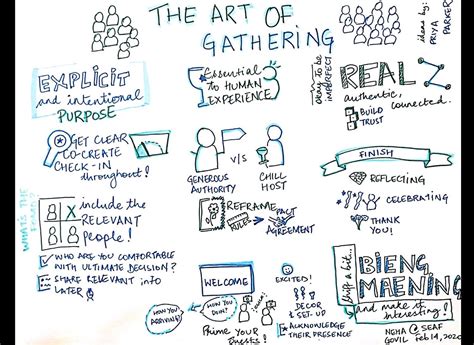 THE ART OF
GATHERING
ideas by:
PRIYA
PARKER
EXPLICIT
and intentional
PURPOSE
Essential
to HUMAN
EXPERIENCE
okay to be
IMPERFECT
REAL
authentic,
connected.
BUILD
TRUST
GET CLEAR
CO-CREATE
CHECK-IN
throughout!
GENEROUS
AUTHORITY
V/S
CHILL
HOST
FINISH
REFLECTING
CELEBRATING
THANK
YOU!
WHAT'S THE
include the
RELEVANT
People!
WHO ARE YOU COMFORTABLE
WITH ULTIMATE DECISION?
SHARE RELEVANT info
LATER
REFRAME
RULES
PACT
AGREEMENT
WELCOME
HOW YOU
ARRIVING?
HOW YOU
DOIN'?
Prime your
Guests!
EXCITED!
DECOR
& SET-UP
ACKNOWLEDGE
THEIR PRESENCE
shift a bit...
BIENG,
MAENING
and make it
interesting!
NEHA @ SEAF
GOVIL feb 14, 2020